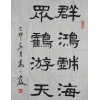 群鴻戲海
眾鶴游天